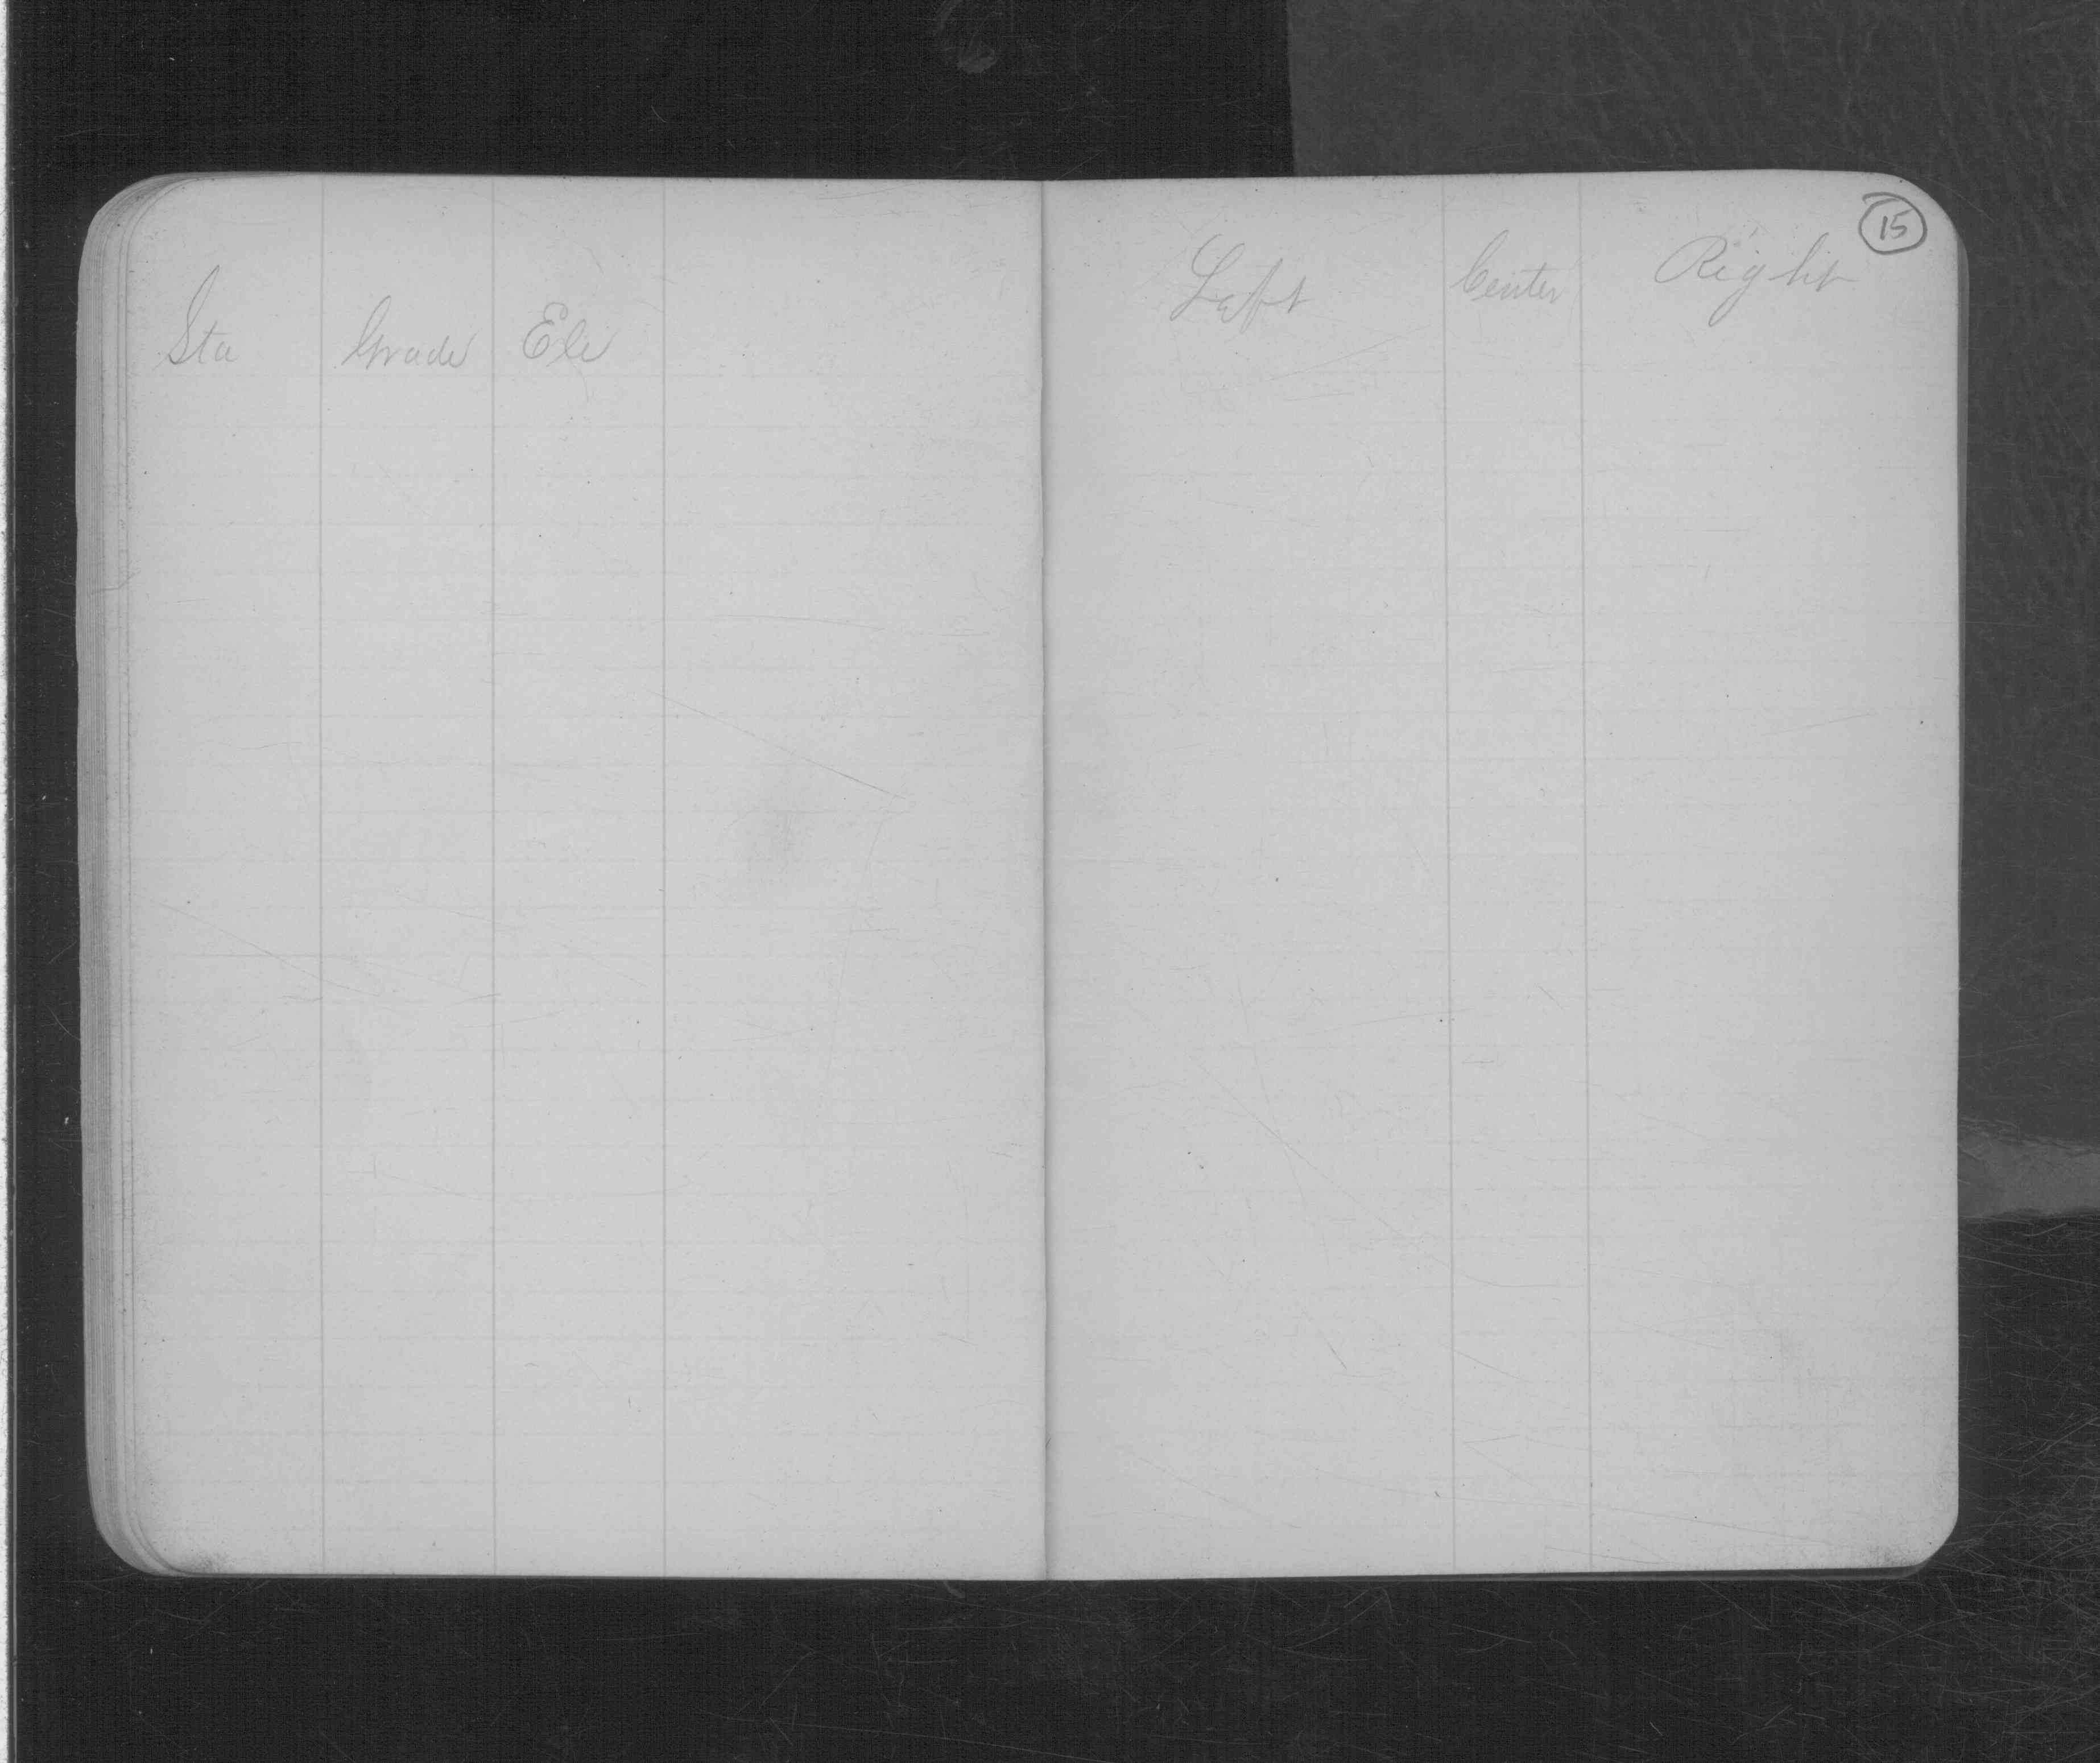 15
Sta Grade Ele
Left Center Right